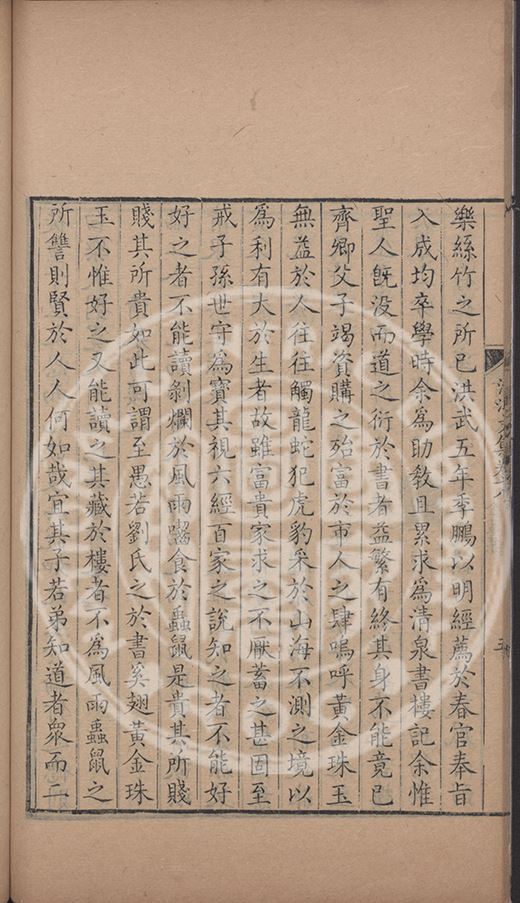 樂絲竹之所已洪武五年季鵬以明經薦於春官奉旨
入成均卒學時余爲助教且累求爲清泉書樓記余惟
聖人旣没而道之衍於書者益繁有終其身不能竟已
齊卿父子竭資購之殆富於市人之肆嗚呼黃金珠玉
無益於人往往觸龍蛇犯虎豹采於山海不測之境以
爲利有大於生者故雖富貴家求之不厭蓄之甚固至
戒子孫世守爲寶其視六經百家之說知之者不能好
好之者不能讀剝爛於風雨齧食於蟲鼠是貴其所賤
賤其所貴如此可謂至愚若劉氏之於書奚翅黃金珠
玉不惟好之又能讀之其藏於樓者不爲風雨蟲鼠之
所讐則賢於人人何如哉宜其子若弟知道者衆而二